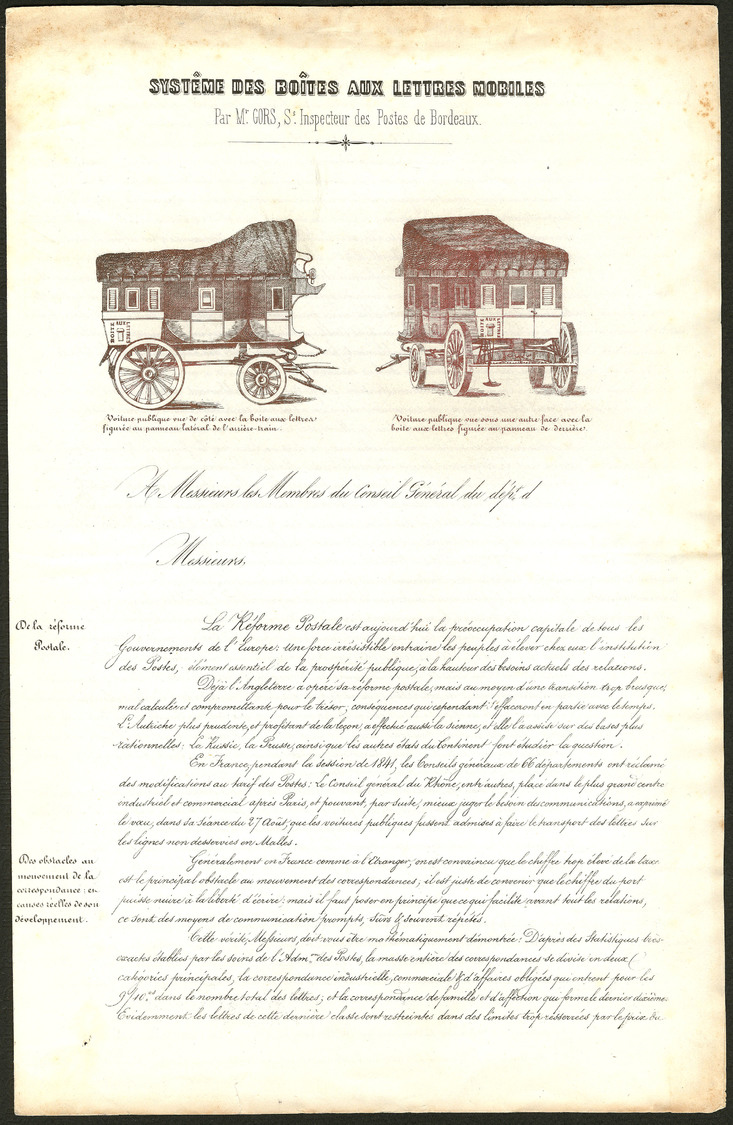 SYSTÊME DES BOÎTES AUX LETTRES MOBILES
Par Mr. GORS, St. Inspecteur des Postes de Bordeaux.
BOITE AUX LETTRES
BOITE AUX LETTRES
Voiture publique vue de côté avec la boite aux lettres
figurée au panneau latéral de l'arrière-train.
Voiture publique vue sous une autre face avec la
boite aux lettres figurée au panneau de derrière.
A Messieurs les Membres du Conseil Général du dépt. d
Messieurs.
De la réforme
Postale.
La Réforme Postale est aujourd'hui la préoccupation capitale de tous les
Gouvernements de l'Europe: Une force irrésistible entraine les peuples à élever chez eux l'institution
des Postes, élément essentiel de la prospérité publique, à la hauteur des besoins actuels des relations.
Déjà l'Angleterre a opéré sa réforme postale, mais au moyen d'une transition trop brusque,
mal calculée et compromettante pour le trésor; conséquences qui cependant s'effaceront en partie avec le temps.
L'Autriche plus prudente, et profitant de la leçon, a effectué aussi la sienne, et elle l'a assise sur des bases plus
rationnelles: La Russie, la Prusse, ainsi que les autres états du Continent font étudier la question.
En France, pendant la session de 1841, les Conseils généraux de 66 départements ont réclamé
des modifications au tarif des Postes: Le Conseil général du Rhône, entr'autres, placé dans le plus grand centre
industriel et commercial après Paris, et pouvant, par suite, mieux juger le besoin du communications, a exprimé
le vœu, dans sa Séance du 27 Août, que les voitures publiques fussent admises à faire le transport des lettres sur
les lignes non desservies en Malles.
Des obstacles au
mouvement de la
correspondance; en
causes réelles de son
développement.
Généralement en France comme à l'Etranger, on est convaincu que le chiffre trop élevé de la taxe
est le principal obstacle au mouvement des correspondances; il est juste de convenir que le chiffre du port
puisse nuire à la liberté d'écrire; mais il faut poser en principe que ce qui facilite avant tout les relations,
ce sont des moyens de communication prompts, sûrs & souvent répétés.
Cette vérité, Messieurs, doit vous être mathématiquement démontrée: D'après des Statistiques très-
exactes établies par les soins de l'Admon. des Postes, la masse entière des correspondances se divise in deux
catégories principales, la correspondance industrielle, commerciale & d'affaires obligées qui entrent pour les
9/10es dans le nombre total des lettres; et la correspondance de famille et d'affection qui forme le dernier dixième.
Evidemment les lettres de cette dernière classe sont restreintes dans des limites trop resserrées par le prix du